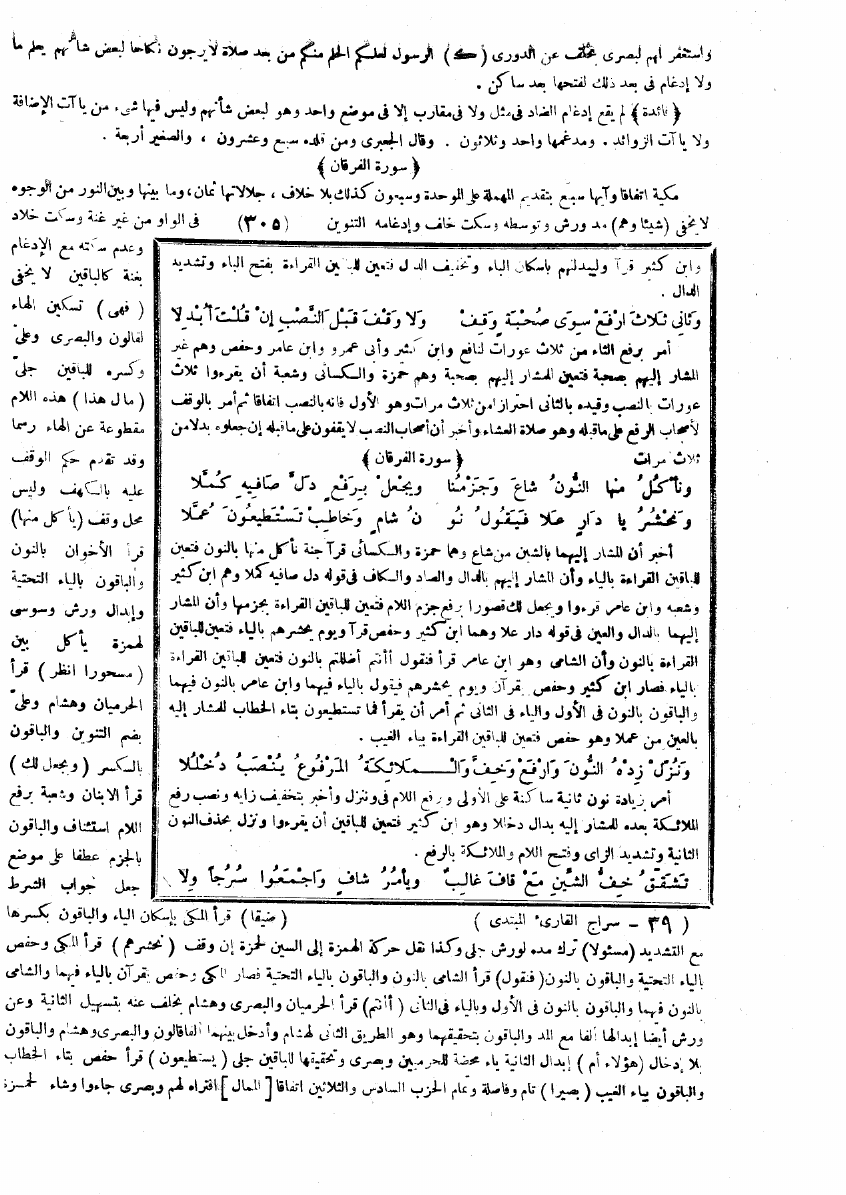 واستغفر لهم لبصرى بخلف عن الدورى (ك) الرسول لعلكم الحلم منكم من بعد صلاة لا يرجون نكاحا لبعض شأنهم يعلم ما
ولا إدغام فى بعد ذلك لفتحها بعد ساكن .
﴿ فائدة ﴾ لم يقع إدغام الضاد فى مثل ولا فى مقارب إلا فى موضع واحد وهو لبعض شأنهم وليس فيها شىء من ياآت الإضافة
ولا ياآت الزوائد . ومدغمها واحد وثلاثون . وقال الجعبرى ومن قلده سبع وعشرون ، والصغير أربعة .
﴿ سورة الفرقان ﴾
مكية اتفاقا وآيها سبع بتقديم المهملة على الموحدة وسبعون كذلك بلا خلاف ، جلالاتها ثمان، وما بينها وبين النور من الوجوه
لا يخفى (شيئا وهم) مد ورش وتوسطه وسكت خلف وإدغامه التنوين (٣٠٥) فى الواو من غير غنة وسكت خلاد
وعدم سكته مع الإدغام
بغنة كالباقين لا يخفى
( فهى ) تسكين الهاء
لقالون والبصرى وعلىّ
وكسره للباقين جلىّ
( مال هذا ) هذه اللام
مقطوعة عن الهاء رسما
وقد تقدم حكم الوقف
عليه بالكهف وليس
محل وقف (يأكل منها)
قرأ الأخوان بالنون
والباقون بالياء التحتية
وإبدال ورش وسوسى
لهمزة يأكل بين
( مسحورا انظر ) قرأ
الحرميان وهشام وعلىّ
بضم التنوين والباقون
بالكسر ( ويجعل لك )
قرأ الابنان وشعبة برفع
اللام استئناف والباقون
بالجزم عطفا على موضع
جعل جواب الشرط
وابن كثير قرآ وليبدلنهم بإسكان الباء وتخفيف الدال فتعين للباقين القراءة بفتح الباء وتشديد
الدال .
وَثَانِي ثَلَاثَ ارْفَعْ سِوَى صُحْبَةٍ وَقِفْ وَلَا وَقْفَ قَبْلَ النَّصْبِ إِنْ قُلْتَ أُبْدِلَا
أمر برفع الثاء من ثلاث عورات لنافع وابن كثير وأبى عمرو وابن عامر وحفص وهم غير
المشار إليهم بصحبة فتعين للمشار إليهم بصحبة وهم حمزة والكسائى وشعبة أن يقرءوا ثلاث
عورات بالنصب وقيده بالثانى احترازا من ثلاث مرات وهو الأول فانه بالنصب اتفاقا ثم أمر بالوقف
لأصحاب الرفع على ما قبله وهو صلاة العشاء وأخبر أن أصحاب النصب لا يقفون على ما قبله إن جعلوه بدلا من
ثلاث مرات ﴿ سورة الفرقان ﴾
وَنَأْكُلُ مِنْهَا النُّونُ شَاعَ وَجَزْمُنَا وَيَجْعَلْ بِرَفْعٍ دَلَّ صَافِيهِ كُمَّلَا
وَنَحْشُرُ يَا دَارٍ عَلَا فَيَقُولُ نُو نُ شَامٍ وَخَاطِبْ تَسْتَطِيعُونَ عُمَّلَا
أخبر أن المشار إليهما بالشين من شاع وهما حمزة والكسائى قرآ جنة نأكل منها بالنون فتعين
للباقين القراءة بالياء وأن المشار إليهم بالدال والصاد والكاف فى قوله دل صافيه كملا وهم ابن كثير
وشعبه وابن عامر قرءوا ويجعل لك قصورا برفع جزم اللام فتعين للباقين القراءة بجزمها وأن المشار
إليهما بالدال والعين فى قوله دار علا وهما ابن كثير وحفص قرآ ويوم يحشرهم بالياء فتعين للباقين
القراءة بالنون وأن الشامى وهو ابن عامر قرأ فنقول أأنتم أضللتم بالنون فتعين للباقين القراءة
بالياء فصار ابن كثير وحفص يقرآن ويوم يحشرهم فيقول بالياء فيهما وابن عامر بالنون فيهما
والباقون بالنون فى الأول والياء فى الثانى ثم أمر أن يقرأ فما تستطيعون بتاء الخطاب للمشار إليه
بالعين من عملا وهو حفص فتعين للباقين القراءة بياء الغيب .
وَنُزِّلَ زِدْهُ النُّونَ وَارْفَعْ وَخِفَّ وَالْـمَلَائِكَةُ المَرْفُوعُ يُنْصَبُ دُخْلُلَا
أمر بزيادة نون ثانية ساكنة على الأولى ورفع اللام فى وننزل وأخبر بتخفيف زايه ونصب رفع
الملائكة بعده للمشار إليه بدال دخللا وهو ابن كثير فتعين للباقين أن يقرءوا ونزل بحذف النون
الثانية وتشديد الزاى وفتح اللام والملائكة بالرفع .
تَشَقَّقُ خِفُّ الشِّينِ مَعْ قَافَ غَالِبٌ وَيَأْمُرُ شَافٍ وَاجْمَعُوا سُرُجاً وِلَا
( ٣٩ - سراج القارئ المبتدى ) (ضيقا) قرأ المكى بإسكان الياء والباقون بكسرها
مع التشديد (مسئولا) ترك مده لورش جلى وكذا نقل حركة الهمزة إلى السين لحمزة إن وقف (نحشرهم) قرأ المكى وحفص
بالياء التحتية والباقون بالنون (فنقول) قرأ الشامى بالنون والباقون بالياء التحتية فصار المكى وحفص يقرآن بالياء فيهما والشامى
بالنون فيهما والباقون بالنون فى الأول وبالياء فى الثانى (أأنتم) قرأ الحرميان والبصرى وهشام بخلف عنه بتسهيل الثانية وعن
ورش أيضا إبدالها ألفا مع المد والباقون بتحقيقهما وهو الطريق الثانى لهشام وأدخل بينهما ألفا قالون والبصرى وهشام والباقون
بلا إدخال (هؤلاء أم) إبدال الثانية ياء محضة للحرميين وبصرى وتحقيقها للباقين جلى (يستطيعون) قرأ حفص بتاء الخطاب
والباقون بياء الغيب (بصيرا) تام وفاصلة وتمام الحزب السادس والثلاثين اتفاقا [الممال] افتراه لهم وبصرى جاءوا وشاء لحمزة